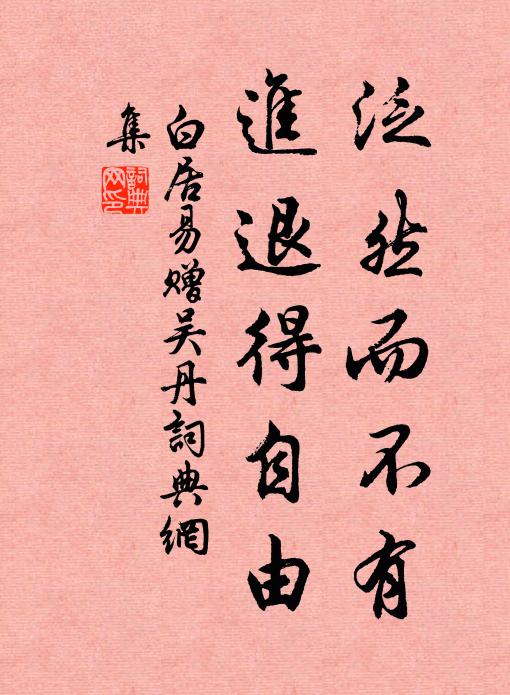 泛然而不有
進退得自由
白居易贈吴丹詞典網
集
詞典
网印